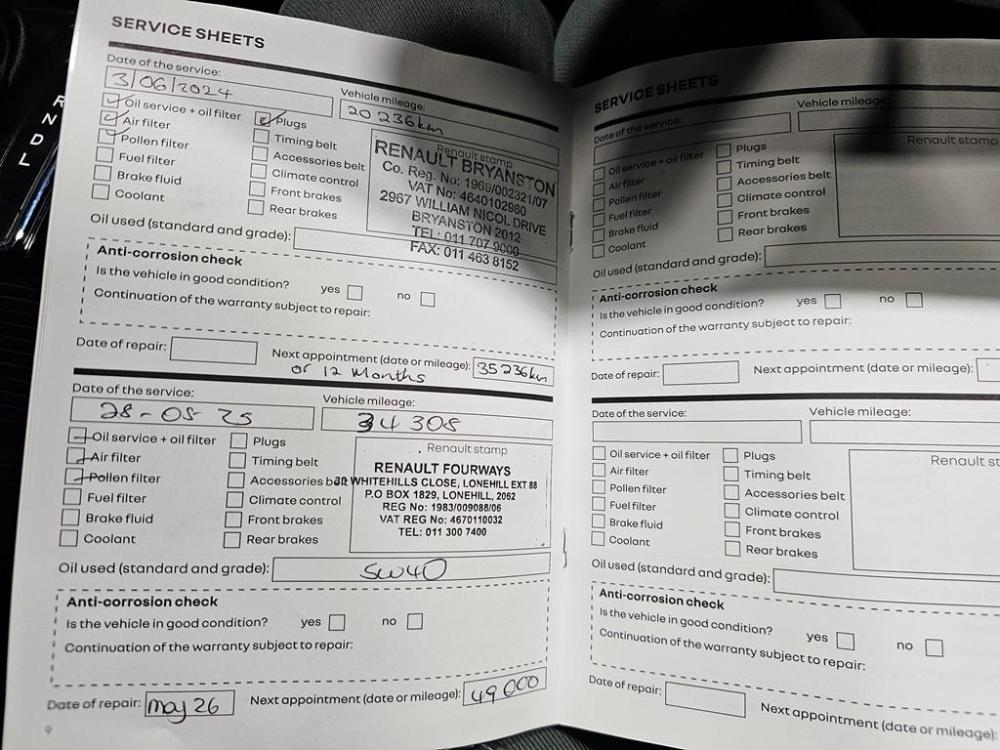 SERVICE SHEETS
Date of the service:
3/06/2024
Vehicle mileage:
20 236km
Oil service + oil filter
Air filter
Pollen filter
Fuel filter
Brake fluid
Coolant
Plugs
Timing belt
Accessories belt
Climate control
Front brakes
Rear brakes
Renault stamp
RENAULT BRYANSTON
Co. Reg. No: 1969/002321/07
VAT No: 4640102960
2967 WILLIAM NICOL DRIVE
BRYANSTON 2012
TEL: 011 707 9000
FAX: 011 463 8152
Oil used (standard and grade):
Anti-corrosion check
Is the vehicle in good condition? yes no
Continuation of the warranty subject to repair:
Date of repair:
Next appointment (date or mileage): 35 236km
or 12 Months
Date of the service:
28-05-25
Vehicle mileage:
34 308
Oil service + oil filter
Air filter
Pollen filter
Fuel filter
Brake fluid
Coolant
Plugs
Timing belt
Accessories belt
Climate control
Front brakes
Rear brakes
Renault stamp
RENAULT FOURWAYS
WHITEHILLS CLOSE, LONEHILL EXT 88
P.O BOX 1829, LONEHILL, 2062
REG No: 1983/009088/06
VAT REG No: 4670110032
TEL: 011 300 7400
Oil used (standard and grade): 5w40
Anti-corrosion check
Is the vehicle in good condition? yes no
Continuation of the warranty subject to repair:
Date of repair: may 26
Next appointment (date or mileage): 49 000
9
SERVICE SHEETS
Date of the service:
Vehicle mileage:
Oil service + oil filter
Air filter
Pollen filter
Fuel filter
Brake fluid
Coolant
Plugs
Timing belt
Accessories belt
Climate control
Front brakes
Rear brakes
Renault stamp
Oil used (standard and grade):
Anti-corrosion check
Is the vehicle in good condition? yes no
Continuation of the warranty subject to repair:
Date of repair:
Next appointment (date or mileage):
Date of the service:
Vehicle mileage:
Oil service + oil filter
Air filter
Pollen filter
Fuel filter
Brake fluid
Coolant
Plugs
Timing belt
Accessories belt
Climate control
Front brakes
Rear brakes
Renault st
Oil used (standard and grade):
Anti-corrosion check
Is the vehicle in good condition? yes no
Continuation of the warranty subject to repair:
Date of repair:
Next appointment (date or mileage):
R
N
D
L